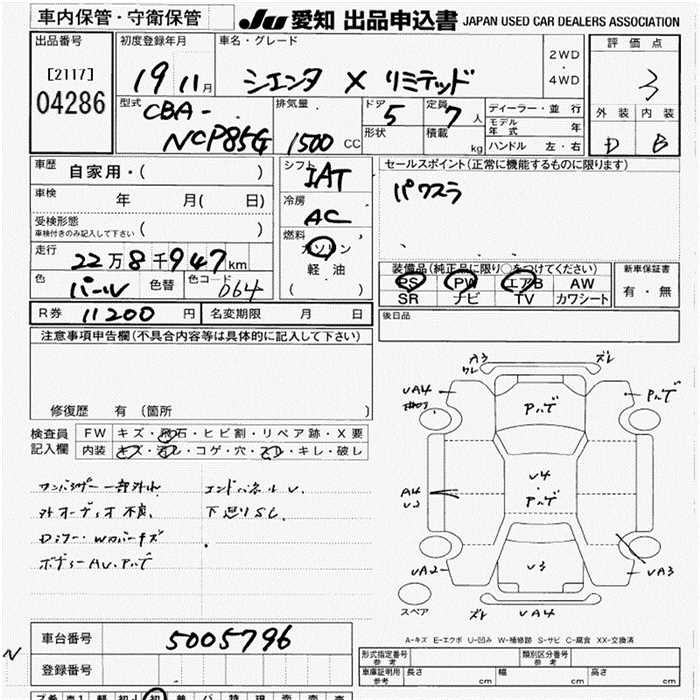 車内保管・守衛保管
JU 愛知 出品申込書 JAPAN USED CAR DEALERS ASSOCIATION
出品番号
[2117]
04286
初度登録年月
19年11月
車名・グレード
シエンタ X リミテッド
2WD
・
4WD
評価点
3
外装 内装
D B
型式
CBA-
NCP85G
排気量
1500 CC
ドア
5
形状
定員
7人
積載
kg
ディーラー・並行
モデル年式 年
ハンドル 左・右
車歴 自家用・( )
車検 年 月( 日)
受検形態
車検付きのみ記入して下さい ( )
走行
22万8千947km
色 パール 色替 色コード 064
シフト
IAT
冷房
AC
燃料
ガソリン
軽油
( )
セールスポイント(正常に機能するものに限ります)
パワスラ
装備品(純正品に限り○をつけてください)
PS PW エアB AW
SR ナビ TV カワシート
新車保証書
有・無
後日品
R券 11200円 名変期限 月 日
注意事項申告欄(不具合内容等は具体的に記入して下さい)
修復歴 有 (箇所 )
検査員
記入欄
FW キズ・飛石・ヒビ割・リペア跡・X要
内装 キズ・汚レ・コゲ・穴・スレ・キレ・破レ
外オーディオ不良
ボディーAU、アルデ
エンドパネルU
下廻りSC
A3
ワレ
ズレ
UA4
アルデ
アルデ
U4
・
アルデ
A4
U3
U3
UA2
UA3
スペア
ズレ UA4
A-キズ E-エクボ U-凹み W-補修跡 S-サビ C-腐食 XX-交換済
N
車台番号 5005796
登録番号
形式指定番号
参考
類別区分番号
参考
車庫証明用
参考
長さ cm 幅 cm 高さ cm